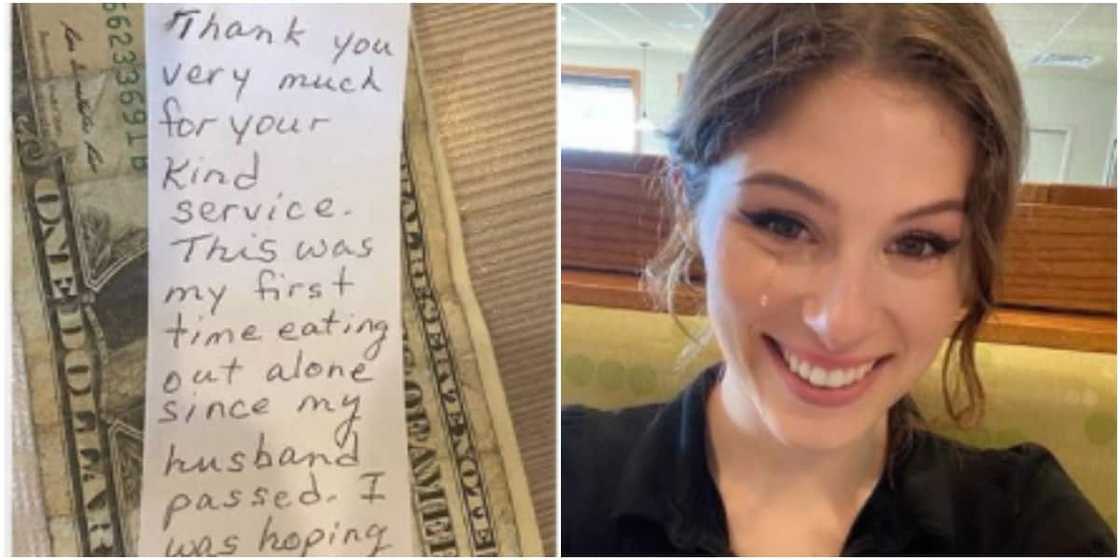 66233691B
ONE DOLLAR
Thank you
very much
for your
kind
service.
This was
my first
time eating
out alone
since my
husband
passed. I
was hoping
RAL RESERVE NOTE
OF AMER